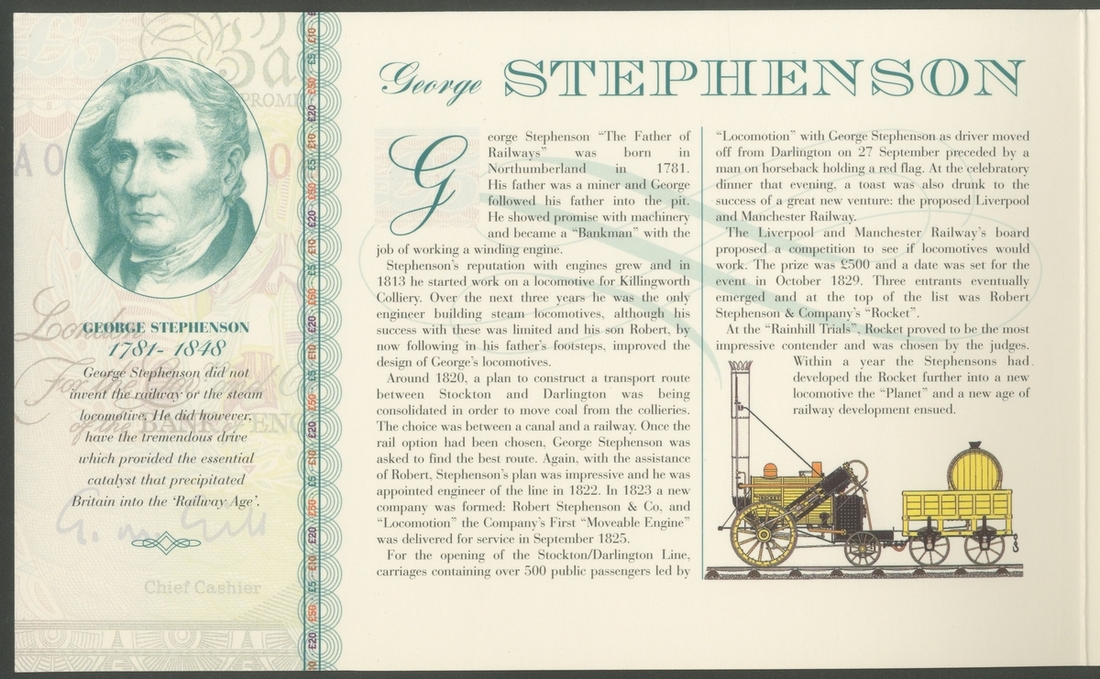 £5
Ba
PROMI
A0
0
London
For the Gov and Co
of the BANK of ENG
GEORGE STEPHENSON
1781- 1848
George Stephenson did not
invent the railway or the steam
locomotive. He did however,
have the tremendous drive
which provided the essential
catalyst that precipitated
Britain into the ‘Railway Age’.
Chief Cashier
George STEPHENSON
George Stephenson “The Father of
Railways” was born in
Northumberland in 1781.
His father was a miner and George
followed his father into the pit.
He showed promise with machinery
and became a “Bankman” with the
job of working a winding engine.
Stephenson’s reputation with engines grew and in
1813 he started work on a locomotive for Killingworth
Colliery. Over the next three years he was the only
engineer building steam locomotives, although his
success with these was limited and his son Robert, by
now following in his father’s footsteps, improved the
design of George’s locomotives.
Around 1820, a plan to construct a transport route
between Stockton and Darlington was being
consolidated in order to move coal from the collieries.
The choice was between a canal and a railway. Once the
rail option had been chosen, George Stephenson was
asked to find the best route. Again, with the assistance
of Robert, Stephenson’s plan was impressive and he was
appointed engineer of the line in 1822. In 1823 a new
company was formed: Robert Stephenson & Co, and
“Locomotion” the Company’s First “Moveable Engine”
was delivered for service in September 1825.
For the opening of the Stockton/Darlington Line,
carriages containing over 500 public passengers led by
“Locomotion” with George Stephenson as driver moved
off from Darlington on 27 September preceded by a
man on horseback holding a red flag. At the celebratory
dinner that evening, a toast was also drunk to the
success of a great new venture: the proposed Liverpool
and Manchester Railway.
The Liverpool and Manchester Railway’s board
proposed a competition to see if locomotives would
work. The prize was £500 and a date was set for the
event in October 1829. Three entrants eventually
emerged and at the top of the list was Robert
Stephenson & Company’s “Rocket”.
At the “Rainhill Trials”, Rocket proved to be the most
impressive contender and was chosen by the judges.
Within a year the Stephensons had
developed the Rocket further into a new
locomotive the “Planet” and a new age of
railway development ensued.